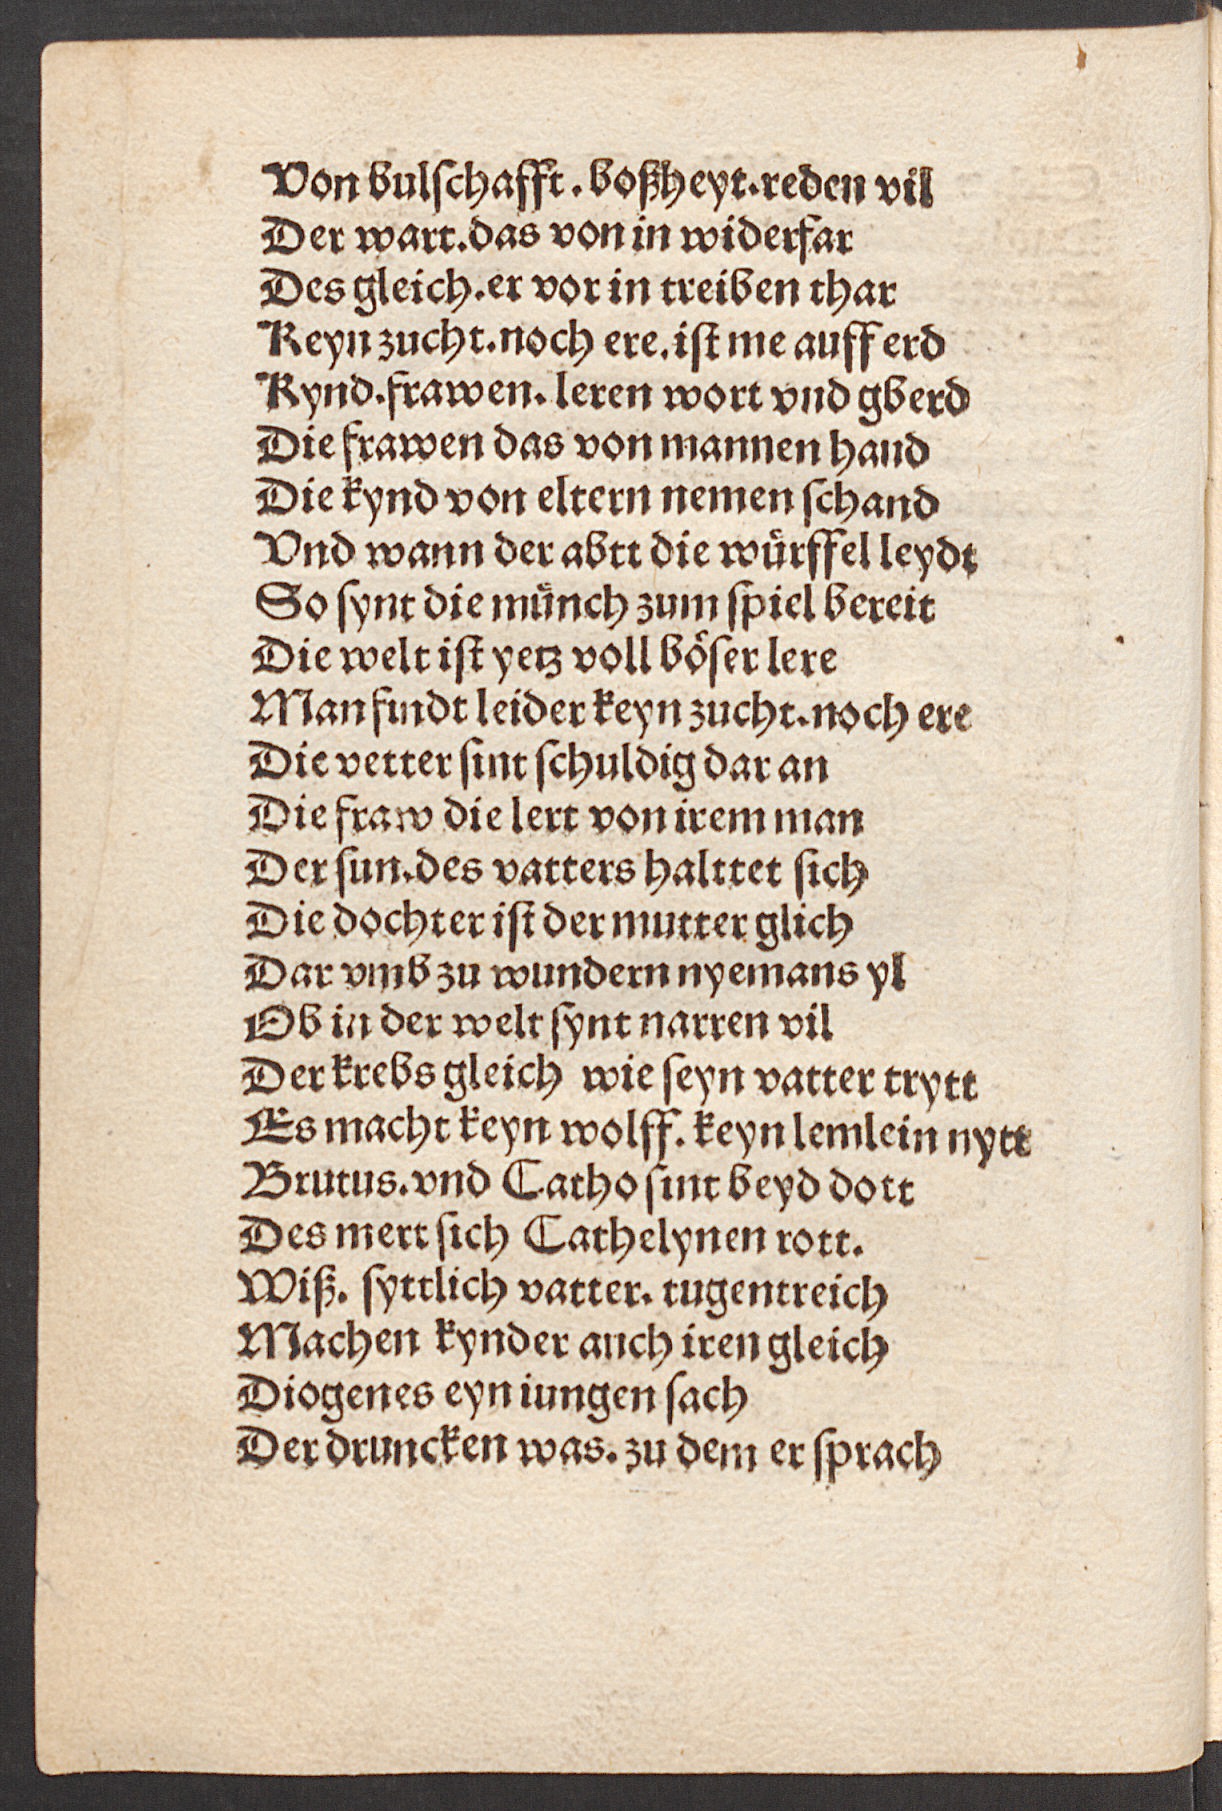 Von bulſchafft. boßheyt. reden vil
Der wart. das von in widerfar
Des gleich. er vor in treiben thar
Keyn zucht. noch ere. iſt me auff erd
Kynd. frawen. leren wort vnd gberd
Die frawen das von mannen hand
Die kynd von eltern nemen ſchand
Vnd wann der abtt die wuͤrffel leydt
So ſynt die muͤnch zum ſpiel bereit
Die welt iſt yetz voll boͤſer lere
Man findt leider keyn zucht. noch ere
Die vetter ſint ſchuldig dar an
Die fraw die lert von irem man
Der ſun. des vatters halttet ſich
Die dochter iſt der mutter glich
Dar vmb zu wundern nyemans yl
Ob in der welt ſynt narren vil
Der krebs gleich wie ſeyn vatter trytt
Es macht keyn wolff. keyn lemlein nytt
Brutus. vnd Catho ſint beyd dott
Des mert ſich Cathelynen rott.
Wiß. ſyttlich vatter. tugentreich
Machen kynder auch iren gleich
Diogenes eyn iungen ſach
Der druncken was. zu dem er ſprach